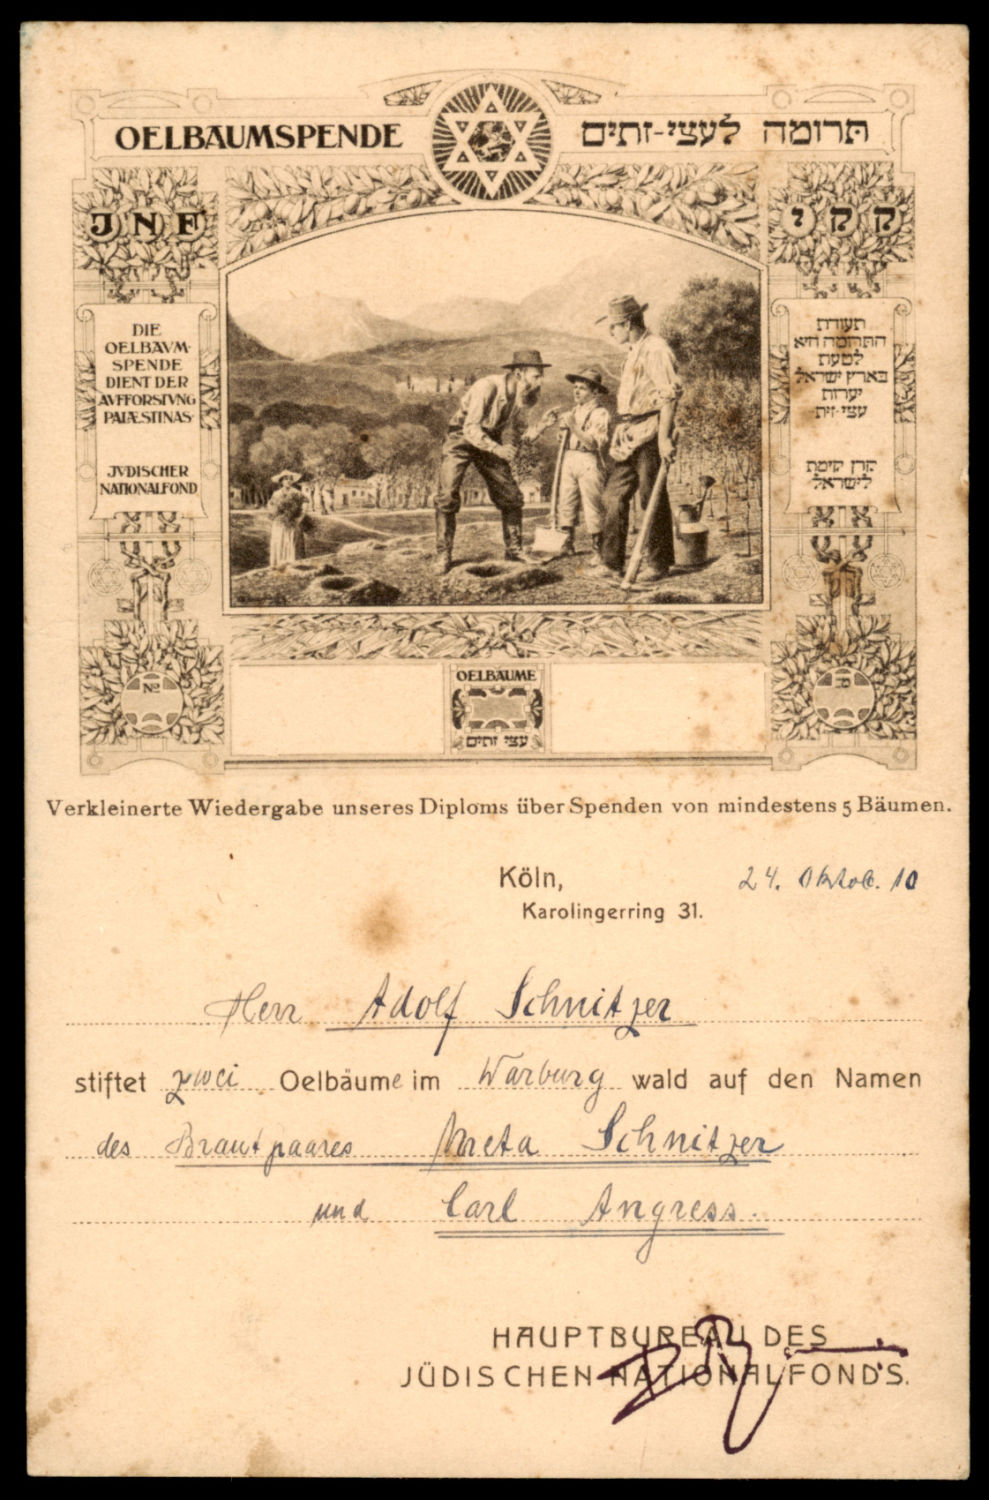 OELBAUMSPENDE תרומה לעצי-זתים
JNF
קקי
DIE
OELBAVM-
SPENDE
DIENT DER
AVFFORSTVNG
PALÆSTINAS·
JVDISCHER
NATIONALFOND
תעודת
התרומה היא
לטעת
בארץ ישראל
יערות
עצי-זית
קרן קימת
לישראל
No
OELBÄUME
עצי זתים
Verkleinerte Wiedergabe unseres Diploms über Spenden von mindestens 5 Bäumen.
Köln, 24. Oktob. 10
Karolingerring 31.
Herr Adolf Schnitzer
stiftet zwei Oelbäume im Warburg wald auf den Namen
des Brautpaares Meta Schnitzer
und Carl Angress.
HAUPTBUREAU DES
JÜDISCHEN NATIONALFONDS.